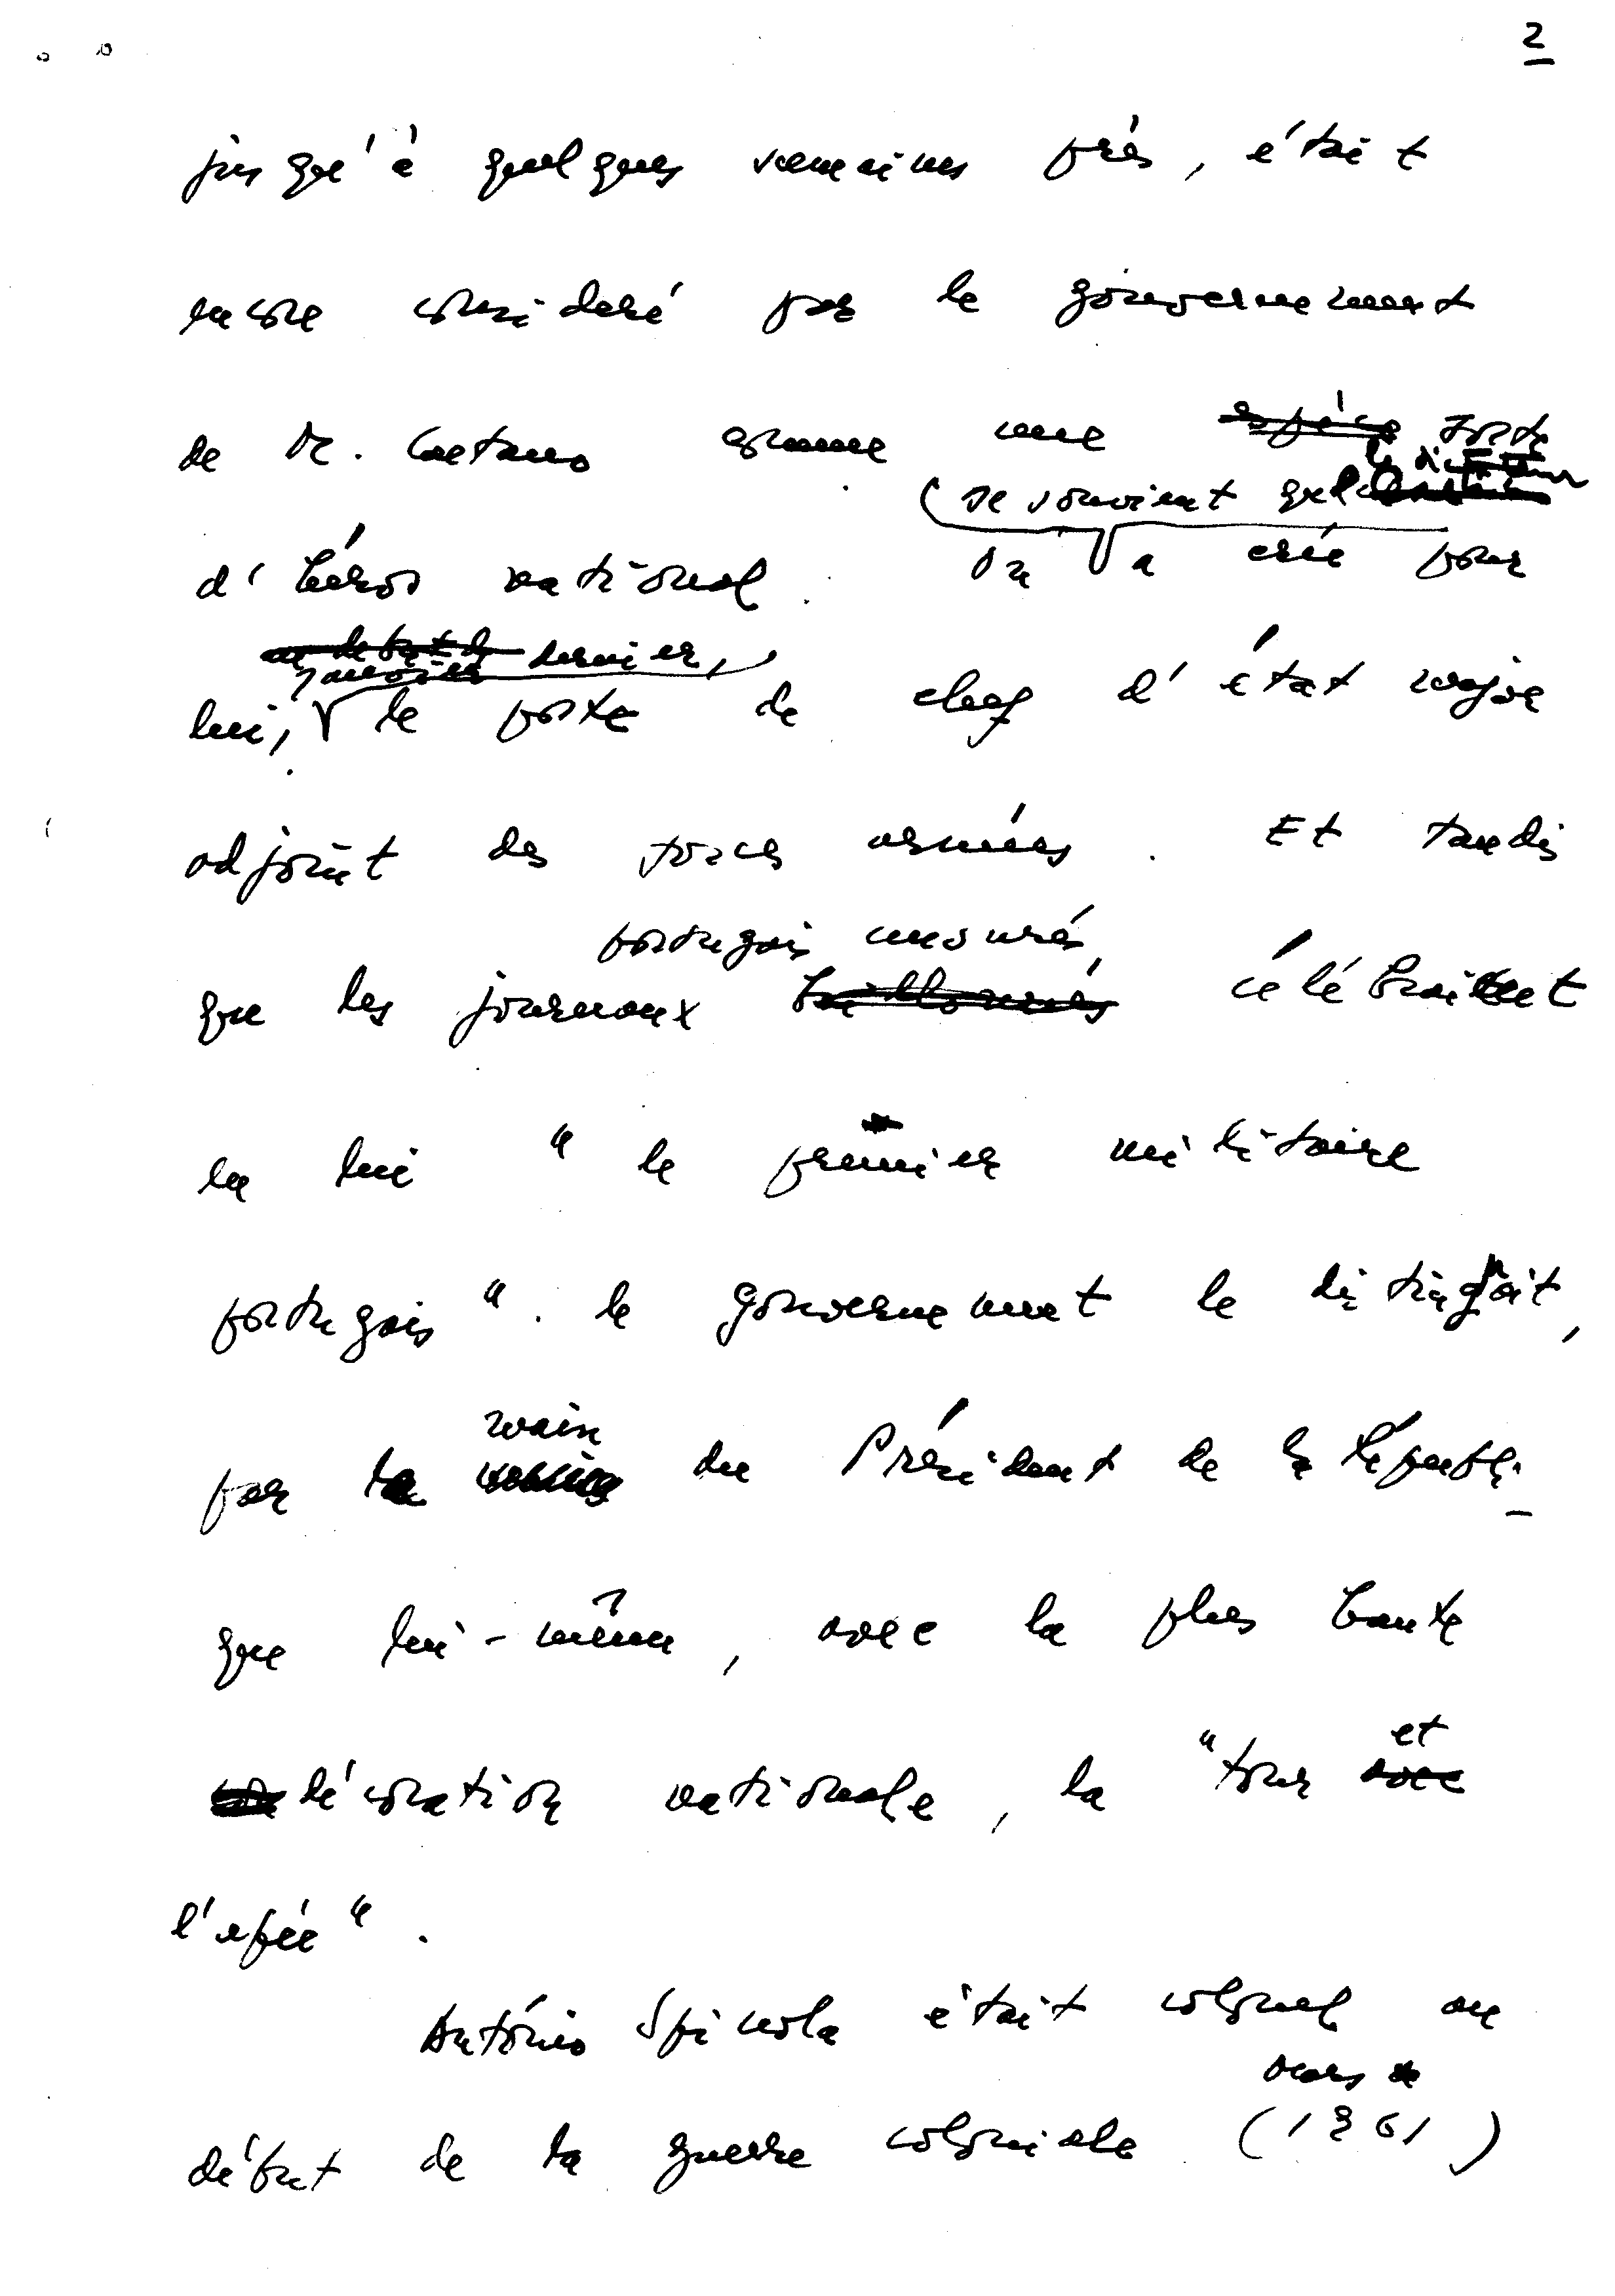 2
jusqu'à quelques semaines près, était
encore consideré par le gouvernement
de M. Caetano comme une espèce sorte
le dictateur
(se souvient que
d'héros national. On a crée pour
au debut de dernier,
janvier
lui, le poste de chef d'état major
adjoint des forces armées. Et tandis
portugais censurés,
que les journaux baillonnés célébraient
en lui "le premier militaire
portugais". le gouvernement le distinguait,
main
par la du Président de la Républi-
que lui-même, avec la plus haute
décoration nationale, la "tour avec
et
l'epée".
António Spinola était colonel au
mars
début de la guerre coloniale (1961)